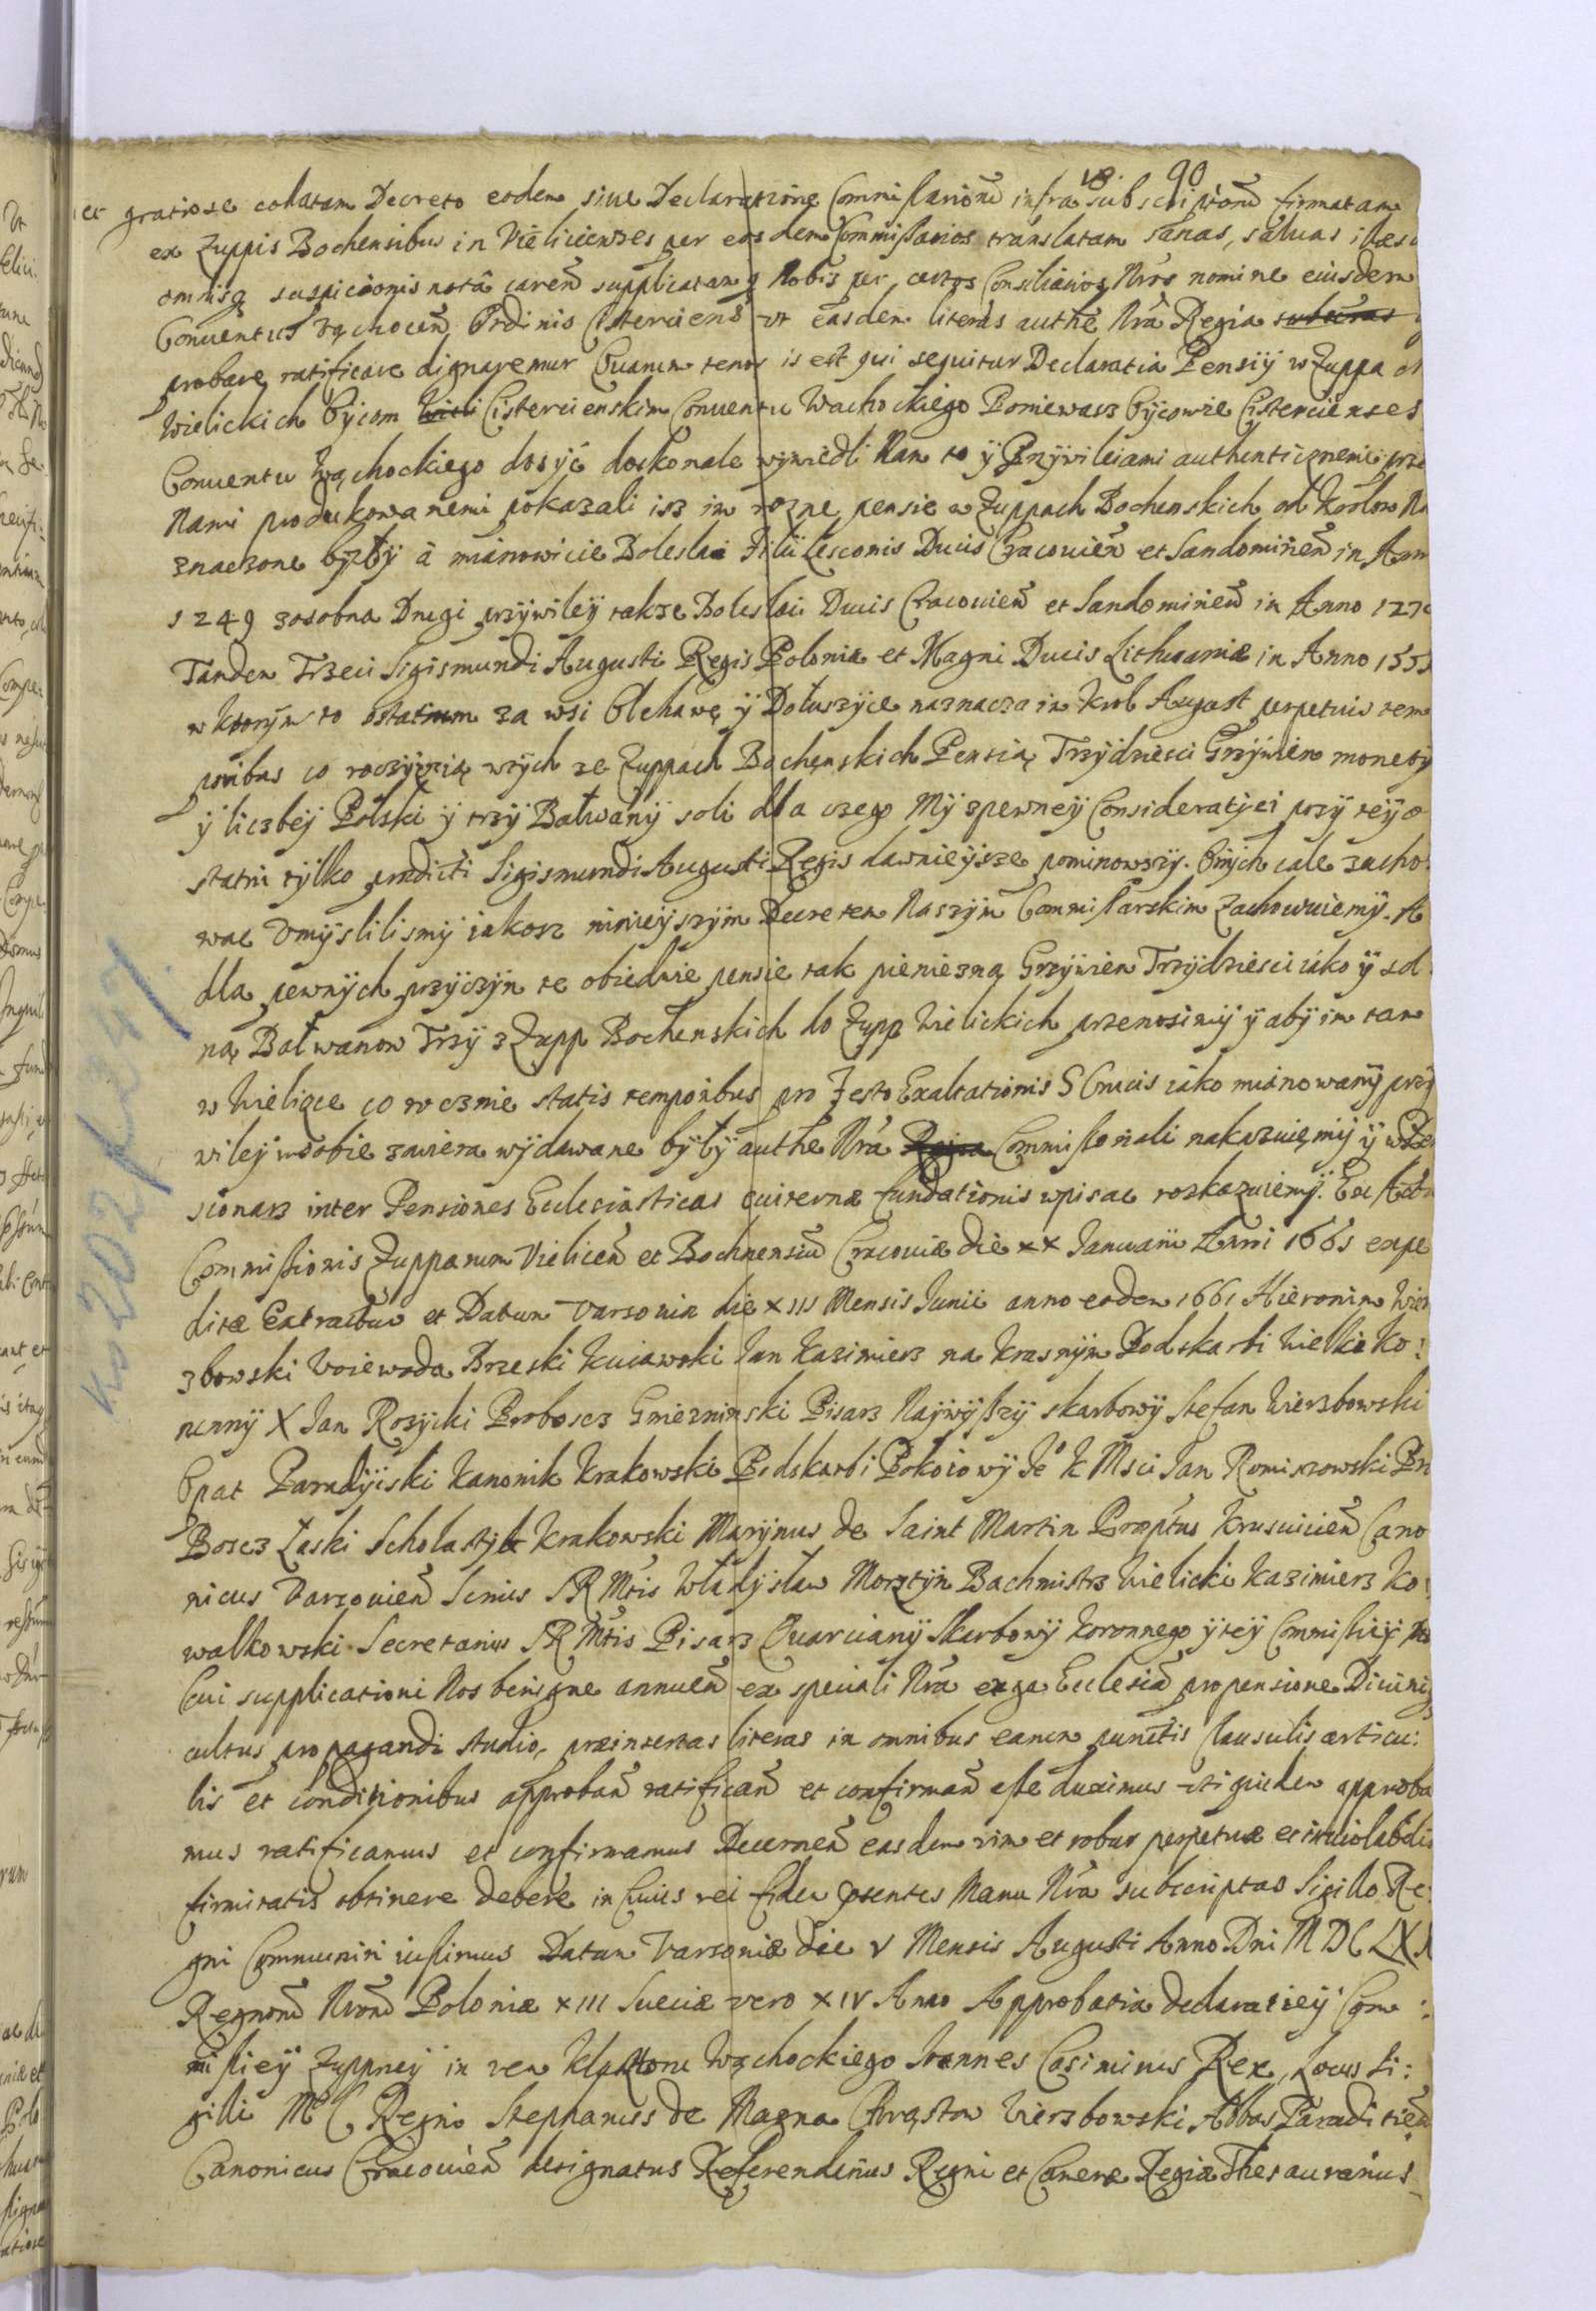 18. 90
et gratiose collatam Decreto eodem siue Declaratione Commissarioru infra subscriptoru firmatam
ex Zuppis Bochensibus in Vielicienses per eosdem Commissarios translatam sanas, saluas illes
omnisq suspicionis nota careñ supplicatumq Nobis per certos Consiliarios Nros nomine eiusdem
Conuentus Wąchoceñ Ordinis Cisterciens vt easdem literas authe Nra Regia
probare, ratificare dignaremur Quarum tenor is est qui sequitur Declaratia Pensiÿ w Zuppa
Wielickich Oÿcom Cistercienskim Conuentu Wachockiego Poniewasz Oÿcowie Cistercienses
Conuentu Wąchockiego dosÿć doskonale wÿwiedli Nam to ÿ Przÿwileiami authenticznemi prze
Nami produkowanemi pokazali isz im rozne pensie w Zuppach Bochenskich od Krolow
znaczone bÿłÿ à mianowicie Boleslai Filii Lesconis Ducis Cracouieñ et Sandomirieñ in Ann
1249 zosobna Drugi przÿwileÿ także Boleslai Ducis Cracouieñ et Sandomirieñ in Anno 127
Tandem Trzeci Sigismundi Augusti Regis Poloniæ et Magni Ducis Lithuaniæ in Anno 155
w ktorÿm to ostatnim za wsi Olchawę ÿ Dołuszÿce naznacza im Krol August perpetuis tem
poribus co rocznÿch ze Zuppach Bochenskich Pensią Trzÿdziesci Grzÿwien monetÿ
ÿ liczbeÿ Polski ÿ trzÿ Bałwanÿ soli dla czego Mÿ zpewneÿ Consideratÿei przÿ teÿ o
statni tÿlko prædicti Sigismundi Augusti Regis dawnieÿsze pominowszÿ. Onÿch cale zacho
wac vmÿslilismÿ iakosz ninieÿszÿm Decretem Naszÿm Commissarskim zachowuiemÿ. A
dla pewnÿch przÿczÿn te obiedwie pensie tak pieniezną Grzÿwien Trzÿdziesci iako ÿ sol
ną Bałwanow Trzÿ z Zupp Bochenskich do Zupp Wielickich przenosimÿ ÿ abÿ im tam
w Wieliczce co rocznie statis temporibus pro Festo Exaltationis S Crucis iako mianowanÿ przÿ
wileÿ wsobie zawiera wÿdawane bÿłÿ authe Nra Commissoriali nakazuięmÿ ÿ w Pen
sionarz inter Pensiones Ecclesiasticas æuiternæ fundationis wpisac rozkazuiemÿ. Ex Actu
Commissionis Zupparum Vielicen et Bochnensiu Cracouiæ die xx Ianuarii Anni 1661 expe
ditæ Extractum et Datum Varsoviæ die XIII Mensis Iunii anno eodem 1661 Hieronim Wier
zbowski Woiewoda Brzeski Kuiawski Ian Kazimierz na Krasnÿm Podskarbi Wielki Ko:
ronnÿ X Ian Rozÿcki Probosez Gnieznienski Pisarz Naÿwÿszÿ skarbowÿ Stefan Wierzbowski
Opat Paradÿiski Kanonik Krakowski Podskarbi Pokoiowÿ Ie° K Msci Ian Romiszowski Pro
Boscz Łaski Scholastÿk Krakowski Marÿnus de Saint Martin Præptus Krusuicien Cano
nicus Varsouien Seruus SR Mtis Władÿsław Morsztÿn Bachmistrz Wielicki Kazimierz Ko:
walkowski Secretarius SR Mtis Pisarz Quarcianÿ Skarbowÿ Koronnego ÿ teÿ Commissieÿ
Cui supplicationi Nos benigne annuen ex speciali Nra erga Ecclesia propensione Diuiniq
cultus propagandi studio, præinsertas literas in omnibus earum punctis clausulis articu:
lis et conditionibus approban ratifican et confirman esse duximus vti quidem approba
mus ratificamus et confirmamus Decernen easdem vim et robur perpetuæ et inuiolabilis
firmitatis obtinere debere in Cuius rei fidem præsentes Manu Nra subscriptas Sigillo Re
gni Communiri iussimus Datum Varsouiæ die V Mensis Augusti Anno Dni MDCLXI
Regnoru Nroru Poloniæ XIII Sueciæ vero XIV Anno Approbatia declaratieÿ Com:
missieÿ Zuppneÿ in rem Klasztoru Wąchockiego Ioannes Casimirus Rex, Locus Si:
gilli M C Regni Stephanus de Magna Chrząstow Wierzbowski Abbas Paradisien
Canonicus Cracouien designatus Referendarius Regni et Cameræ Regiæ Thesaurarius